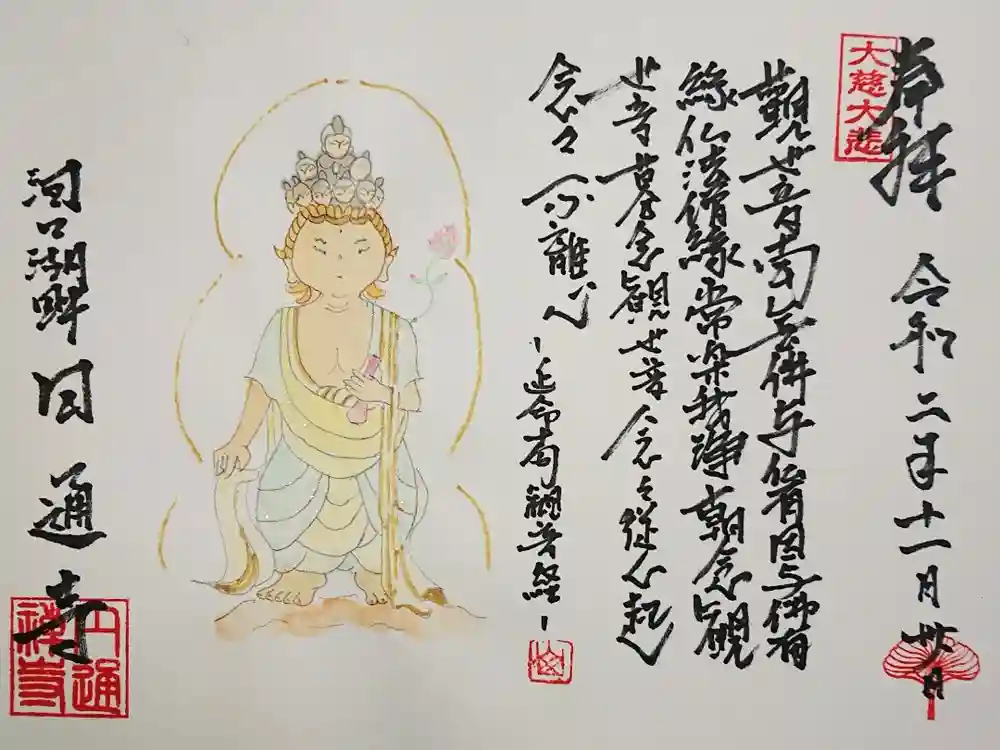 大慈大悲
奉拝 令和二年十一月廿日
觀世音南無佛与仏有因与佛有
縁仏法僧縁常楽我浄朝念観
世音暮念観世音念々従心起
念々不離心 ー延命十句観音経ー
河口湖畔 円通寺
円通禅寺